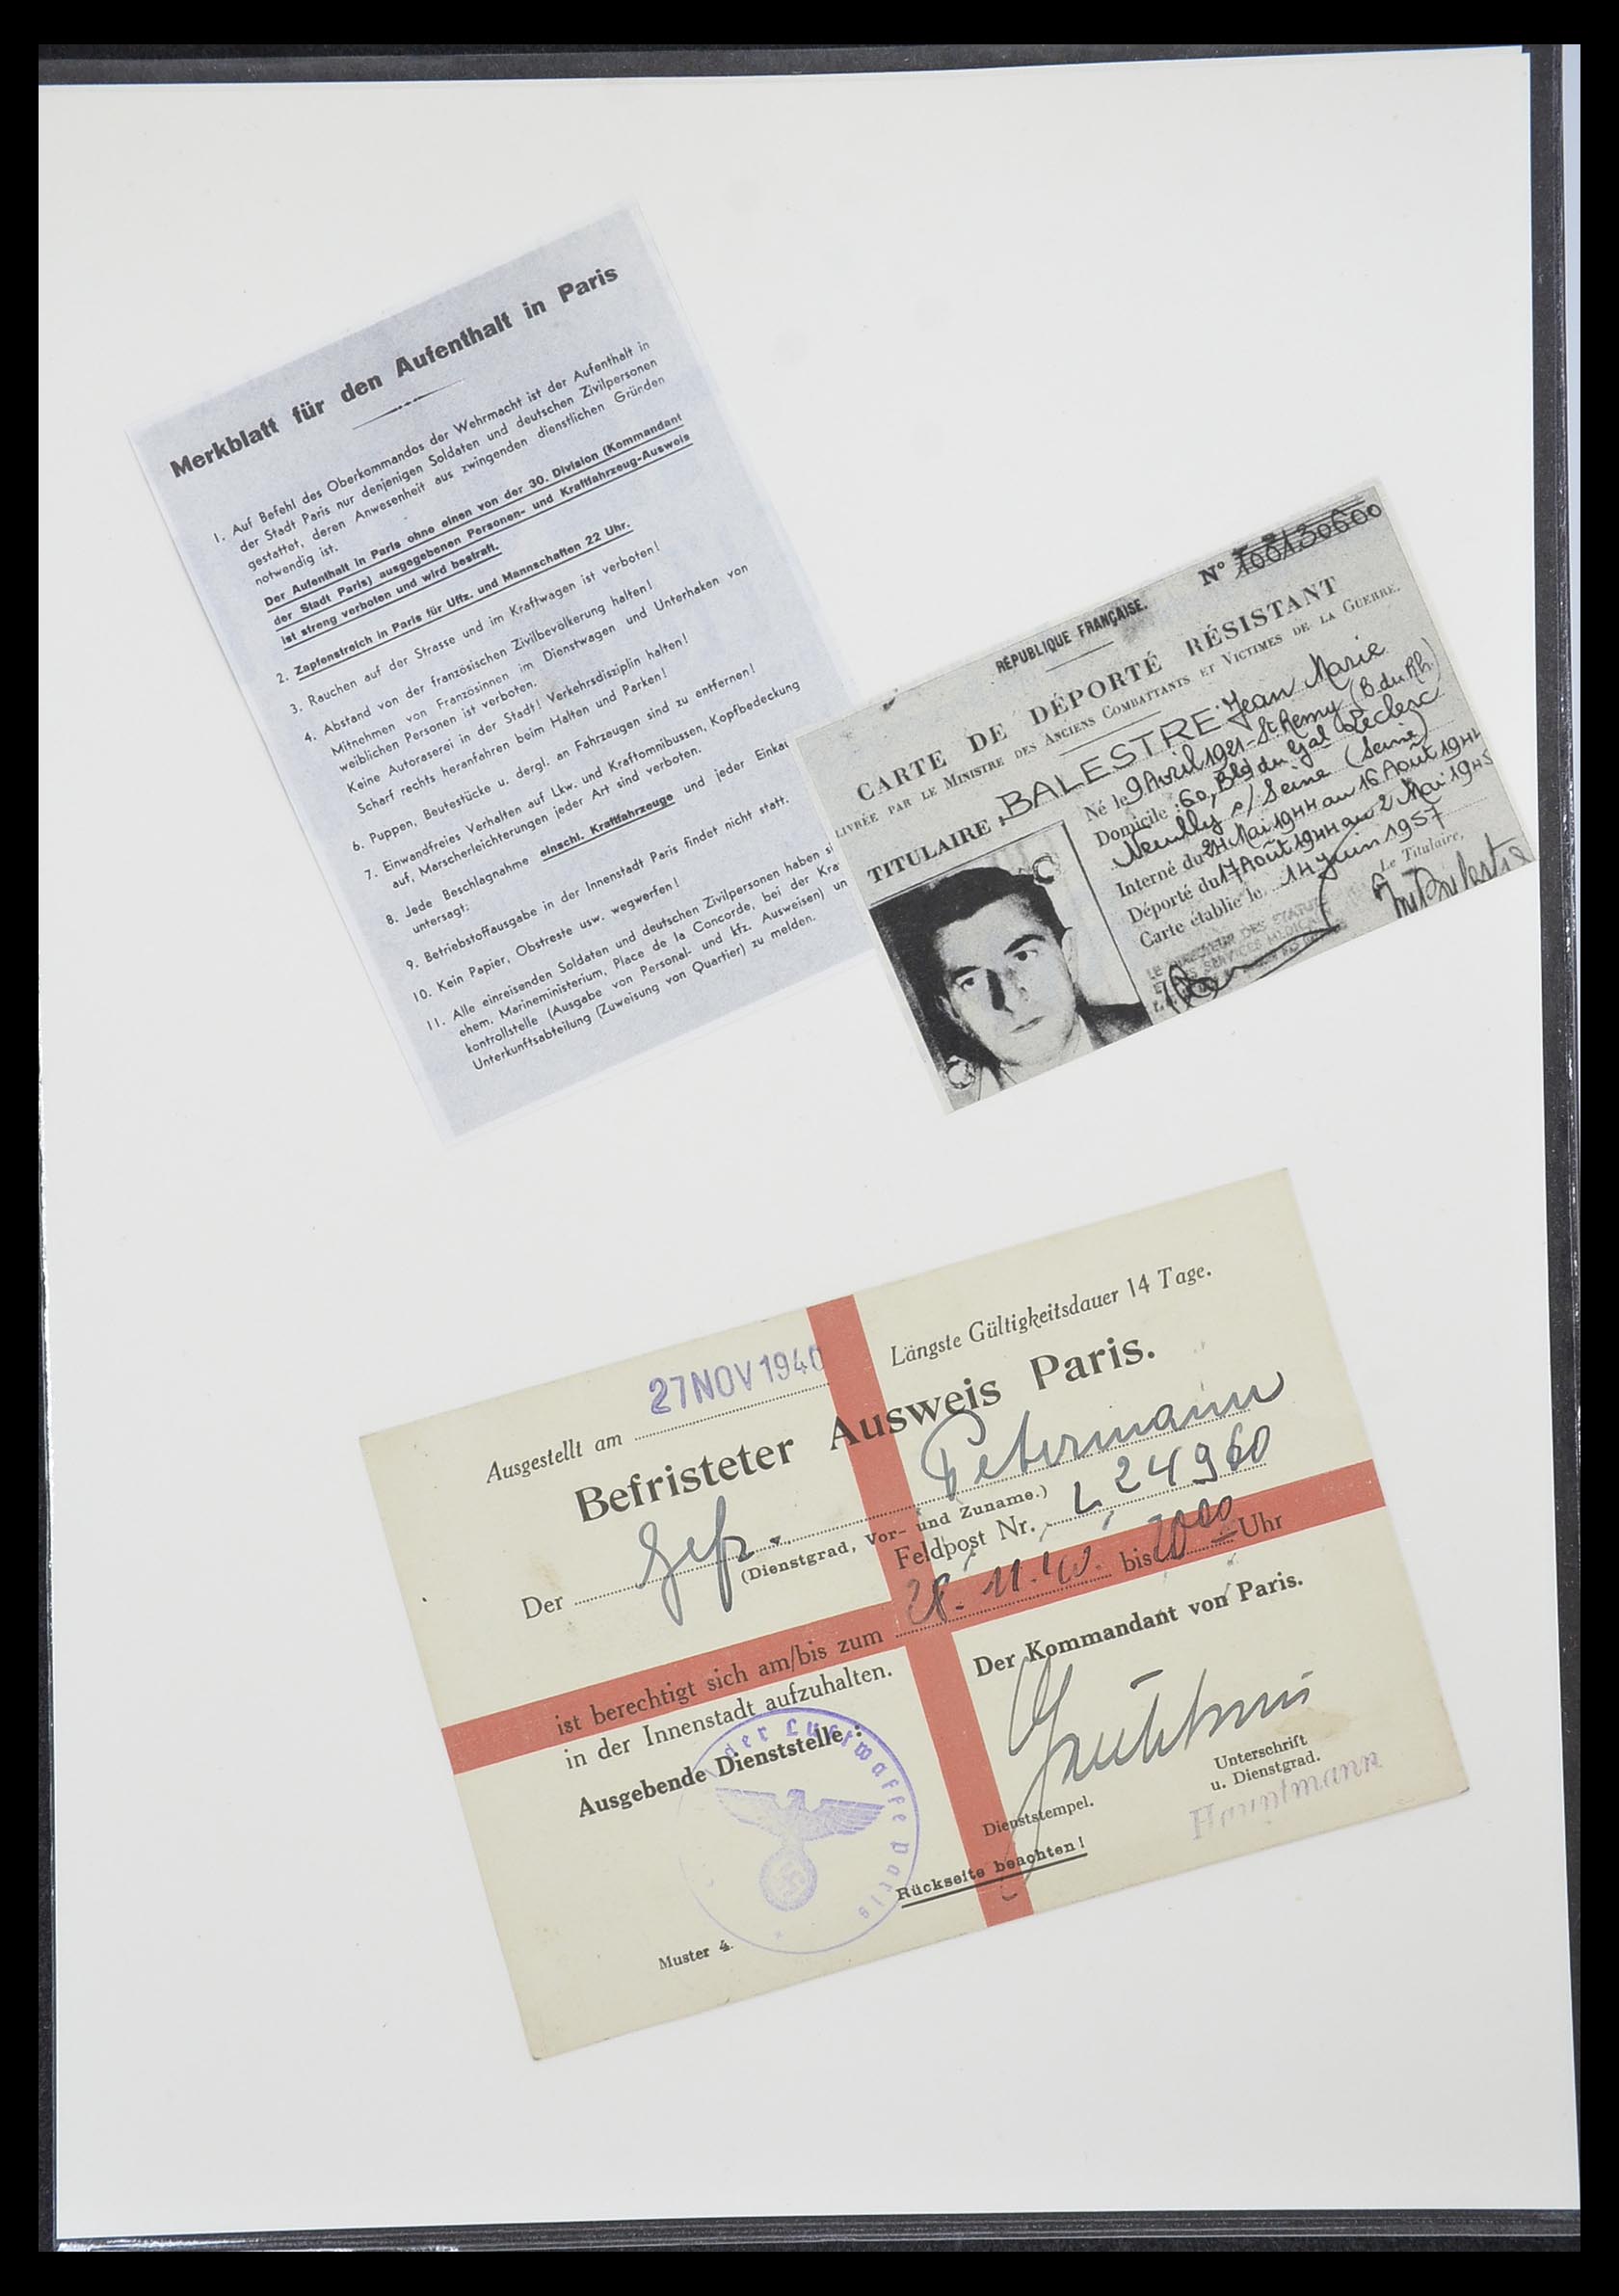 Merkblatt für den Aufenthalt in Paris
1. Auf Befehl des Oberkommandos der Wehrmacht ist der Aufenthalt in
der Stadt Paris nur denjenigen Soldaten und deutschen Zivilpersonen
gestattet, deren Anwesenheit aus zwingenden dienstlichen Gründen
notwendig ist.
Der Aufenthalt in Paris ohne einen von der 30. Division (Kommandant
der Stadt Paris) ausgegebenen Personen- und Kraftfahrzeug-Ausweis
ist streng verboten und wird bestraft.
2. Zapfenstreich in Paris für Uffz. und Mannschaften 22 Uhr.
3. Rauchen auf der Strasse und im Kraftwagen ist verboten!
4. Abstand von der französischen Zivilbevölkerung halten!
Mitnehmen von Französinnen im Dienstwagen und Unterhaken von
weiblichen Personen ist verboten.
Keine Autoraserei in der Stadt! Verkehrsdisziplin halten!
Scharf rechts heranfahren beim Halten und Parken!
6. Puppen, Beutestücke u. dergl. an Fahrzeugen sind zu entfernen!
7. Einwandfreies Verhalten auf Lkw. und Kraftomnibussen, Kopfbedeckung
auf, Marscherleichterungen jeder Art sind verboten.
8. Jede Beschlagnahme einschl. Kraftfahrzeuge und jeder Einkau
untersagt:
9. Betriebstoffausgabe in der Innenstadt Paris findet nicht statt.
10. Kein Papier, Obstreste usw. wegwerfen!
11. Alle einreisenden Soldaten und deutschen Zivilpersonen haben s
ehem. Marineministerium, Place de la Concorde, bei der Kra
kontrollstelle (Ausgabe von Personal- und kfz. Ausweisen) un
Unterkunftsabteilung (Zuweisung von Quartier) zu melden.
RÉPUBLIQUE FRANÇAISE.
N°
CARTE DE DÉPORTÉ RÉSISTANT
LIVRÉE PAR LE MINISTRE DES ANCIENS COMBATTANTS ET VICTIMES DE LA GUERRE.
TITULAIRE, BALESTRE Jean Marie
Né le 9 Avril 1921 - St Remy (B. du Rh)
Domicile : 60, Bld du Gal Leclerc
Neuilly s/ Seine (Seine)
Interné du 24 Mai 1944 au 16 Août 1944
Déporté du 17 Août 1944 au 2 Mai 1945
Carte établie le 14 Juin 1957
Le Titulaire,
Ausgestellt am 27 NOV 1940
Längste Gültigkeitsdauer 14 Tage.
Befristeter Ausweis Paris.
Der Gefr. Petermann
(Dienstgrad, Vor- und Zuname.)
Feldpost Nr. L 24960
ist berechtigt sich am/bis zum 28. 11. 40. bis 2000 Uhr
in der Innenstadt aufzuhalten.
Ausgebende Dienststelle :
Der Kommandant von Paris.
der Luftwaffe Paris
Unterschrift
u. Dienstgrad.
Hauptmann
Dienststempel.
Rückseite beachten!
Muster 4.